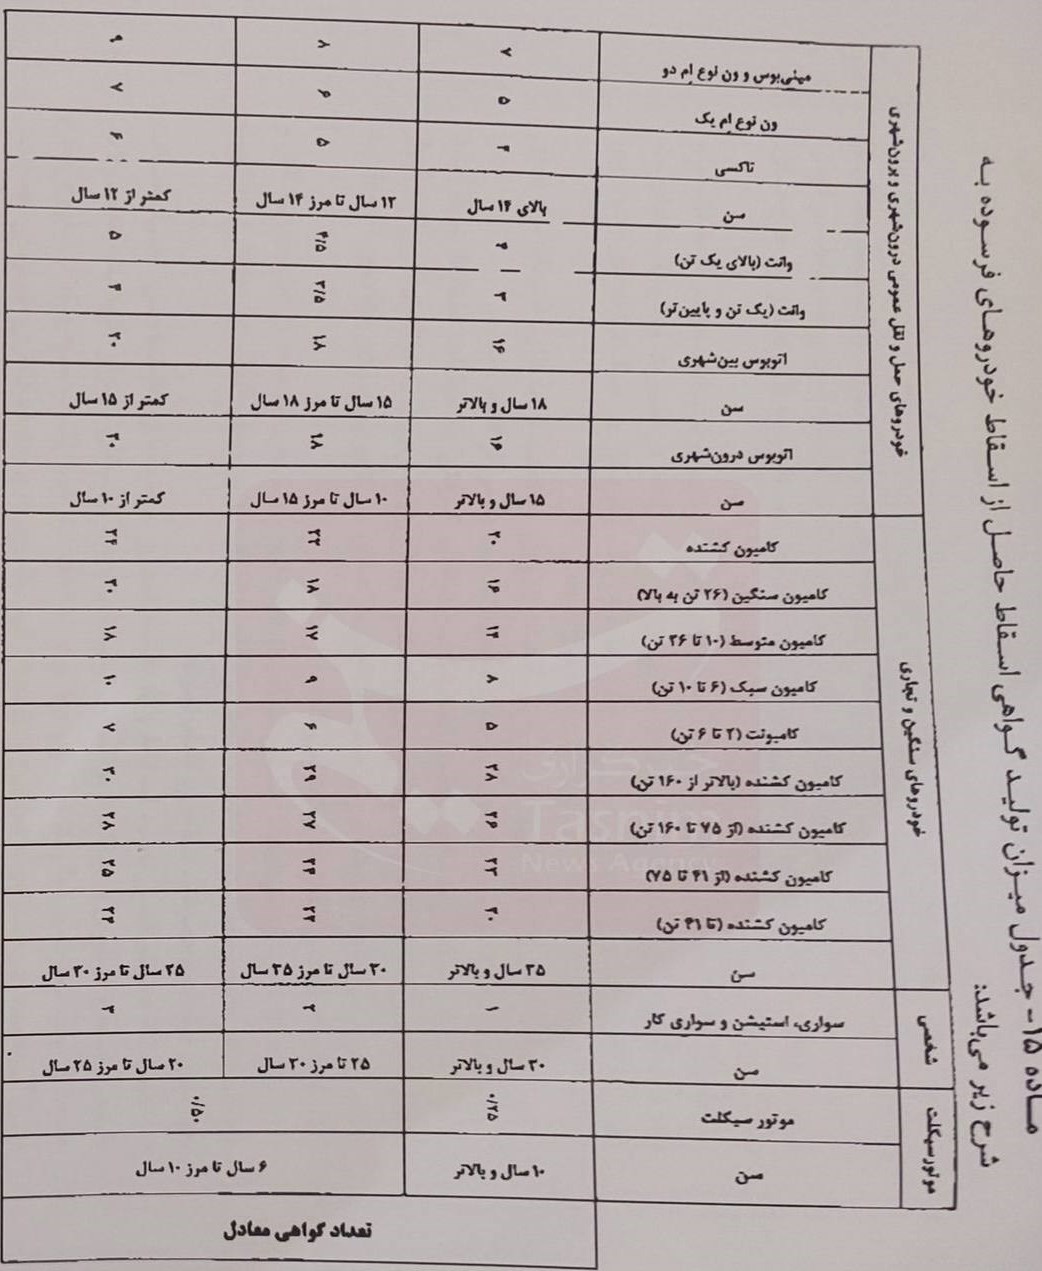 ماده ۱۵- جدول میزان تولید گواهی اسقاط حاصل از اسقاط خودروهای فرسوده به
شرح زیر می‌باشد:
خودروهای حمل و نقل عمومی درون‌شهری و برون‌شهری
مینی‌بوس و ون نوع ام دو ۷ ۸ ۹
ون نوع ام یک ۵ ۶ ۷
تاکسی ۴ ۵ ۶
سن بالای ۱۴ سال ۱۲ سال تا مرز ۱۴ سال کمتر از ۱۲ سال
وانت (بالای یک تن) ۴ ۴/۵ ۵
وانت (یک تن و پایین‌تر) ۳ ۳/۵ ۴
اتوبوس بین‌شهری ۱۶ ۱۸ ۲۰
سن ۱۸ سال و بالاتر ۱۵ سال تا مرز ۱۸ سال کمتر از ۱۵ سال
اتوبوس درون‌شهری ۱۶ ۱۸ ۲۰
سن ۱۵ سال و بالاتر ۱۰ سال تا مرز ۱۵ سال کمتر از ۱۰ سال
خودروهای سنگین و تجاری
کامیون کشنده ۲۰ ۲۲ ۲۴
کامیون سنگین (۲۶ تن به بالا) ۱۶ ۱۸ ۲۰
کامیون متوسط (۱۰ تا ۲۶ تن) ۱۴ ۱۷ ۱۸
کامیون سبک (۶ تا ۱۰ تن) ۸ ۹ ۱۰
کامیونت (۲ تا ۶ تن) ۵ ۶ ۷
کامیون کشنده (بالاتر از ۱۶۰ تن) ۲۸ ۲۹ ۳۰
کامیون کشنده (از ۷۵ تا ۱۶۰ تن) ۲۶ ۲۷ ۲۸
کامیون کشنده (از ۴۱ تا ۷۵) ۲۳ ۲۴ ۲۵
کامیون کشنده (تا ۴۱ تن) ۲۰ ۲۲ ۲۴
سن ۳۵ سال و بالاتر ۳۰ سال تا مرز ۳۵ سال ۲۵ سال تا مرز ۳۰ سال
شخصی
سواری، استیشن و سواری کار ۱ ۲ ۳
سن ۳۰ سال و بالاتر ۲۵ تا مرز ۳۰ سال ۲۰ سال تا مرز ۲۵ سال
موتورسیکلت
موتور سیکلت ۰/۲۵ ۰/۵۰
سن ۱۰ سال و بالاتر ۶ سال تا مرز ۱۰ سال
تعداد گواهی معادل
خبرگزاری
Tasnim
News Agency